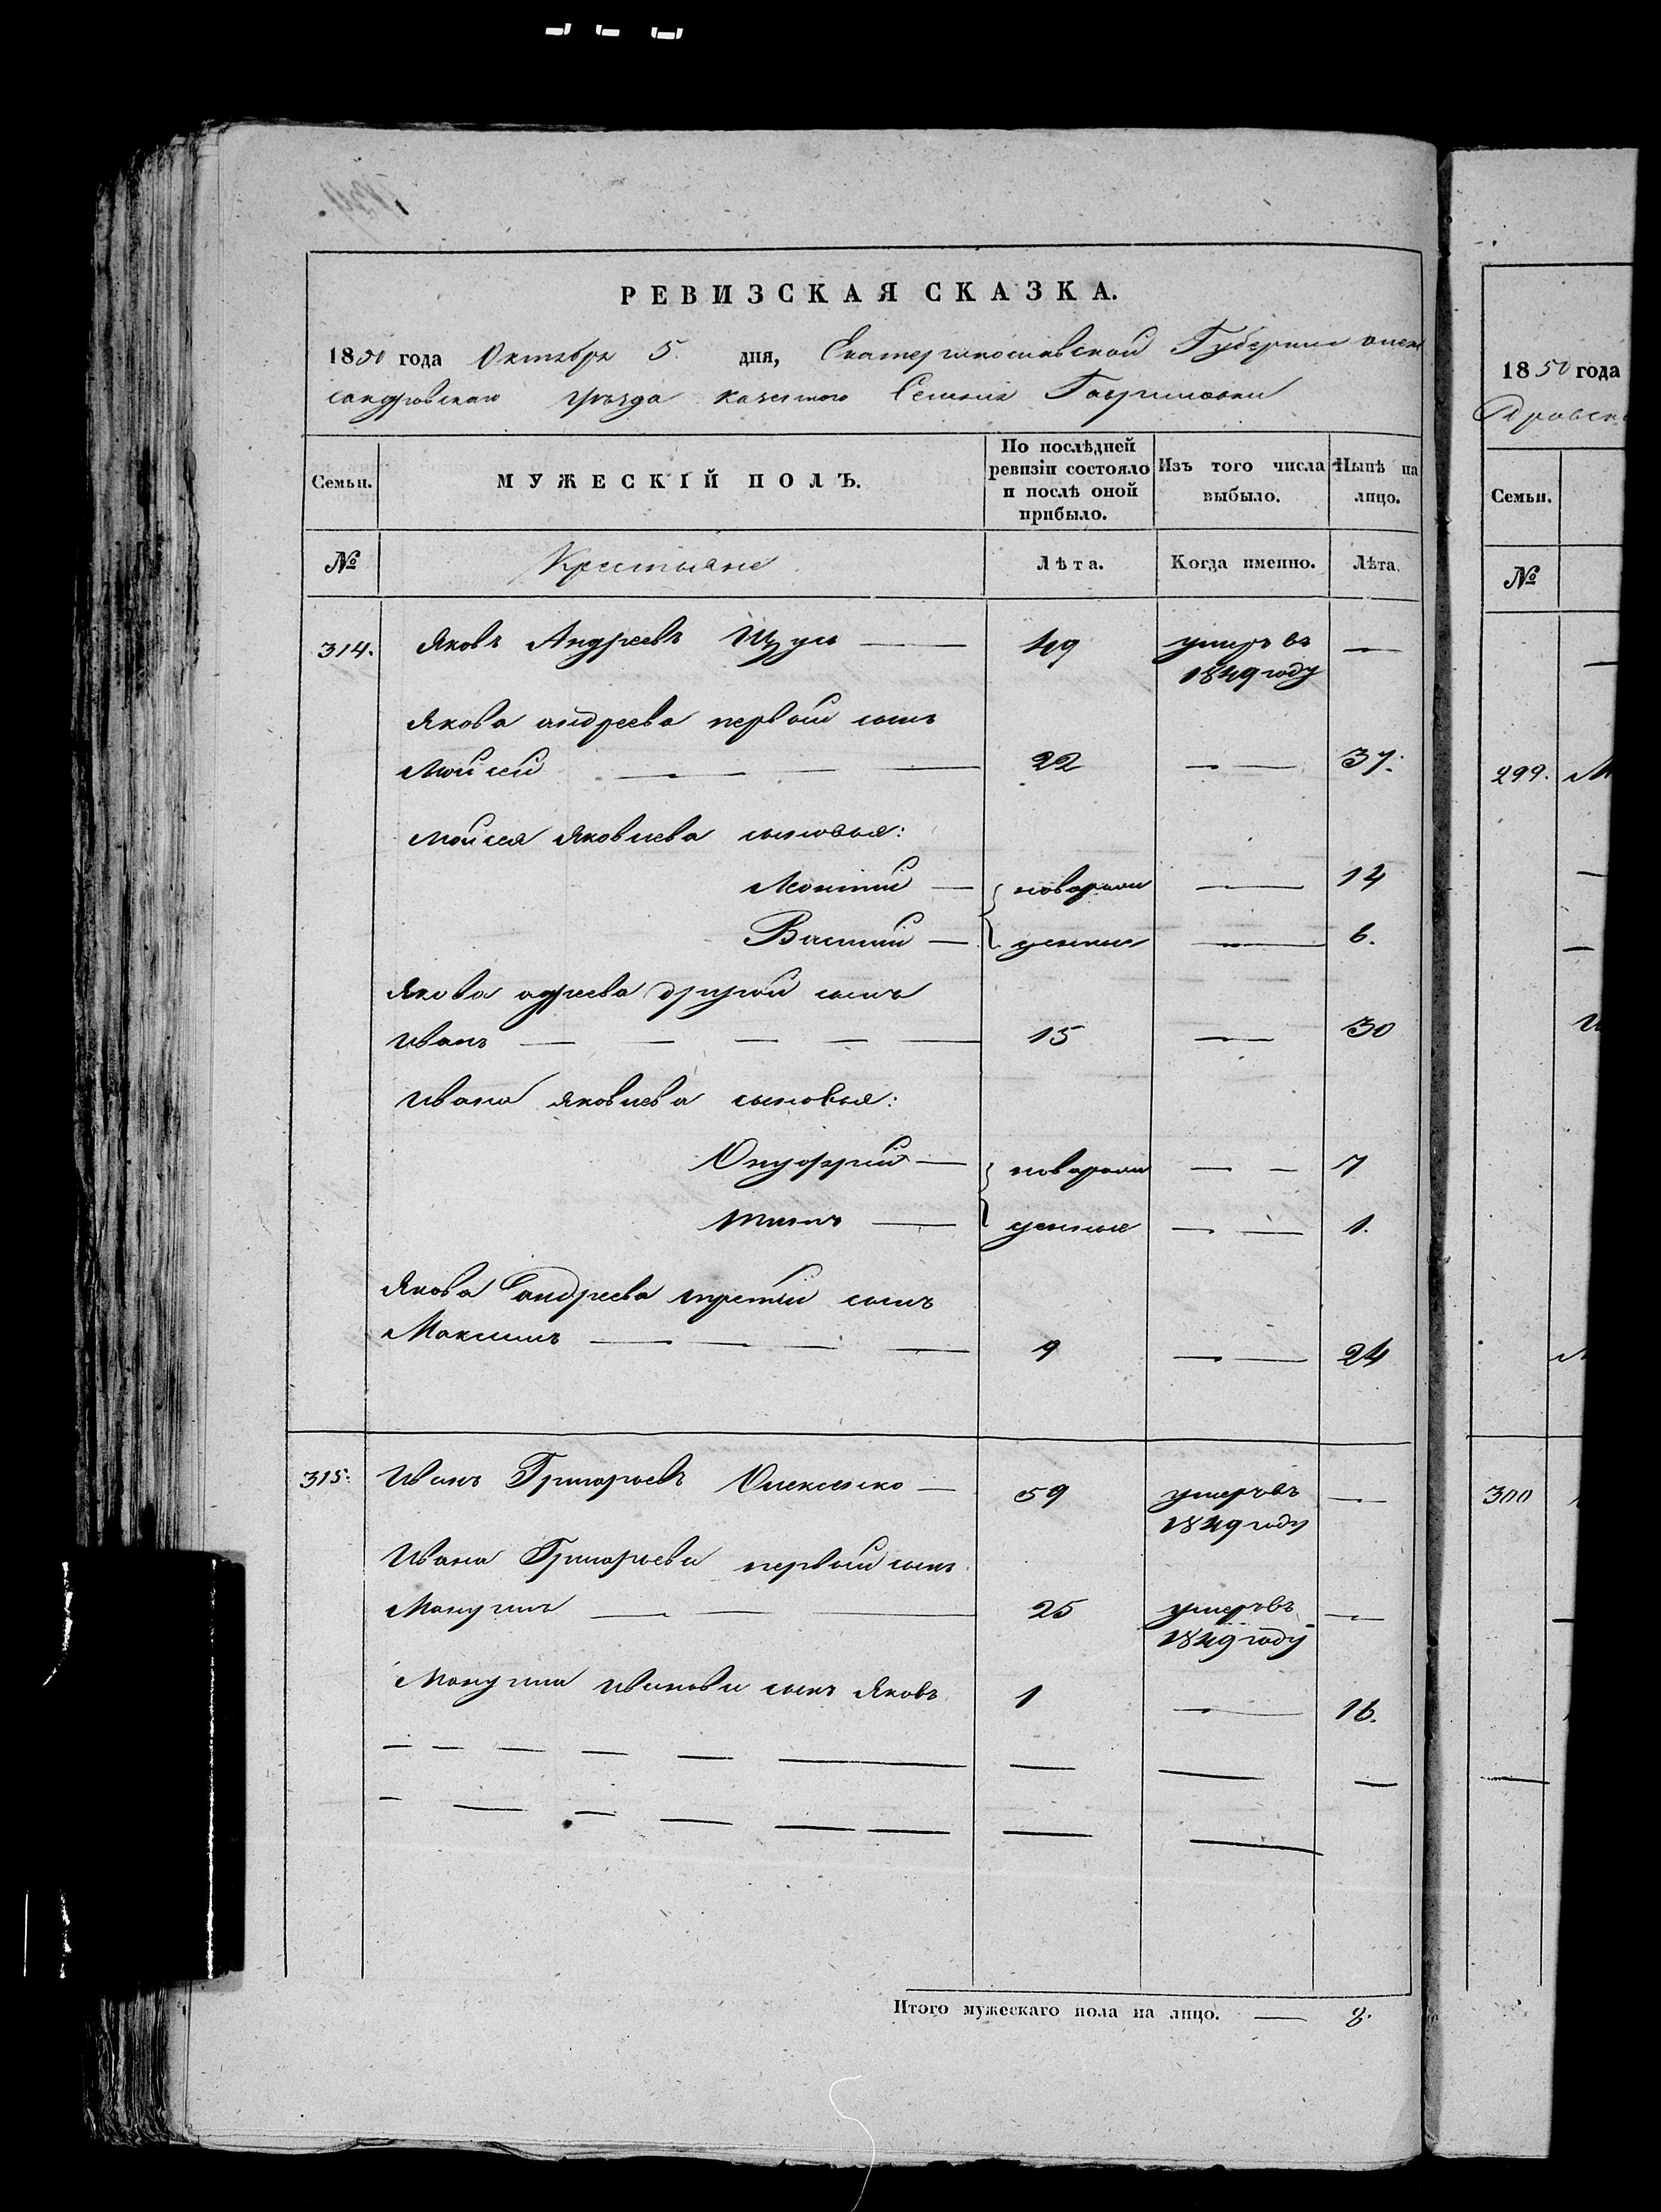 РЕВИЗСКАЯ СКАЗКА.
1850 года Октября 5. дня, Екатеринославской Губернии Алек
сандровскаго уѣзда казеннаго Селенія Гавриловки
Семьи. МУЖЕСКІЙ ПОЛЪ. По послѣдней ревизіи состояло и послѣ оной прибыло. Изъ того числа выбыло. Нынѣ на лицо.
№ Крестьяне Лѣта. Когда именно. Лѣта.
314. Яковъ Андреевъ 49 умеръ въ —
1849 году
Якова андреева первый сынъ
Мойсей — 22 — 37.
Мойсея Яковлева сыновья:
Леонтий — новорож — 14
Василий — денные — 6.
Якова адреева другой сынъ
Иванъ — 15 — 30
Ивана Яковлева сыновья:
Онуфрий — новорож — 7
— денные — 1.
Якова андреева третий сынъ
Максимъ — 9 — 24
315. Иванъ Григорьевъ Олексенко — 59 умеръ въ —
1849 году
Ивана Григорьева первый сынъ
Мануилъ — 25 умеръ въ —
1849 году
Мануила Иванова сынъ Яковъ 1 — 16.
Итого мужескаго пола на лицо. — 8.
1850 года
дровск
Семьи.
№
299.
300